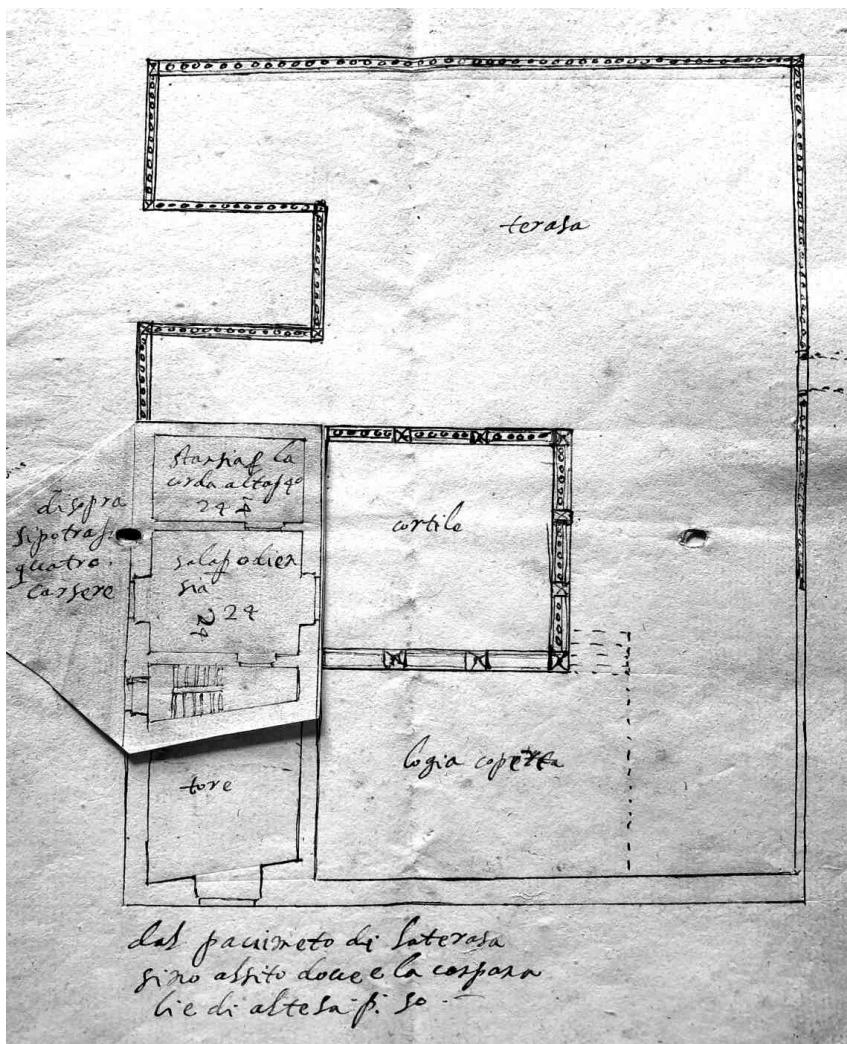 terasa
stansia p la
corda alta p 40
24
disopra
si potra f
quatro
carsere
cortile
sala p odien
sia
24 24
logia coperta
tore
dal pauimeto di la terasa
sino al sito doue e la canpana
lie di altesa p. 50